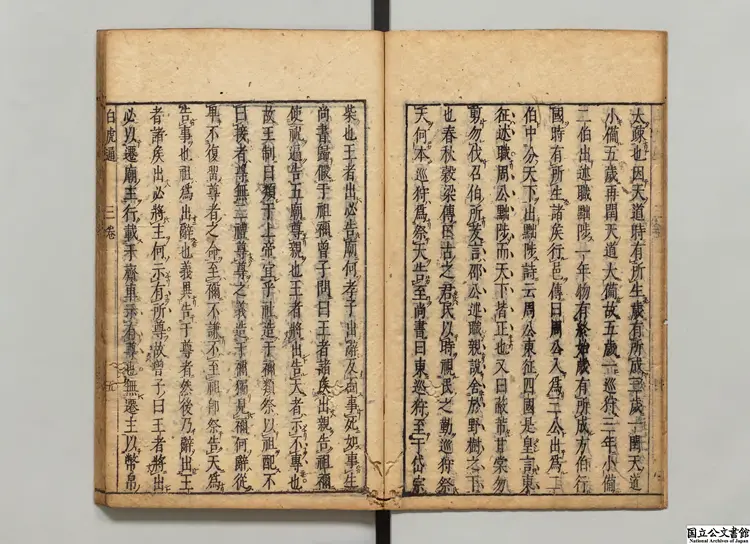 太疎也因天道時有所生歲有所成三歲一閏天道
小備五歲再閏天道大備故五歲一巡狩三年小備
二伯出述職黜陟一年物有終始歲有所成方伯行
國時有所生諸矦行邑傳曰周公入爲三公出爲二
伯中分天下出黜陟詩云周公東征四國是皇言東
征述職周公黜陟而天下皆正也又曰蔽芾甘棠勿
剪勿伐召伯所茇言邵公述職親說舍於野樹之下
也春秋穀梁傳曰古之君民以時視民之勤巡狩祭
天何本巡狩爲祭天告至尚書曰東巡狩至于岱宗
柴也王者出必告廟何孝子出辭反面事死如事生
尚書歸假于祖禰曾子問曰王者諸矦出親告祖禰
使祝遍告五廟尊親也王者將出告天者示不專也
故王制曰類于上帝宜乎社造于禰類祭以祖配不
曰接者尊無二禮尊尊之義造于禰獨見禰何辭從
卑不復畱尊者之命至禰不謙不至祖即祭告天爲
告事也祖爲出辭也義異告于尊者然後乃辭出王
者諸矦出必將主何示有所尊故曾子曰王者將出
必以遷廟主行載于齋車示有尊也無遷主以幣帛
白虎通 三卷 五
国立公文書館
National Archives of Japan